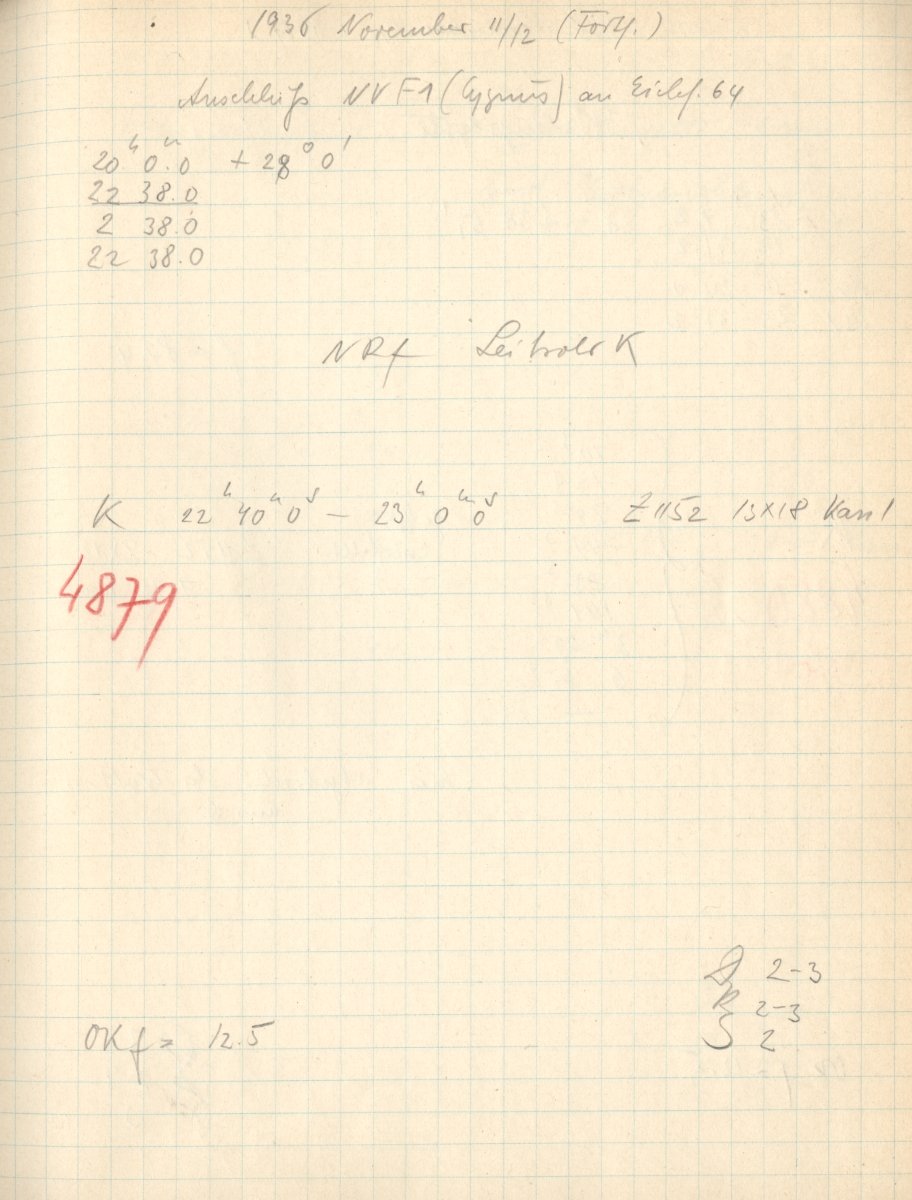 1936 November 11/12 (Forts.)
Anschluß NVF1 (Cygnus) an Eichf. 64
20ʰ 0ᵐ.0 + 28° 0'
22 38.0
2 38.0
22 38.0
NRf Leitrohr K
K 22ʰ 40ᵐ 0ˢ — 23ʰ 0ᵐ 0ˢ Z 1152 13×18 Kass 1
4879
2-3
R 2-3
OKf = 12.5
S 2